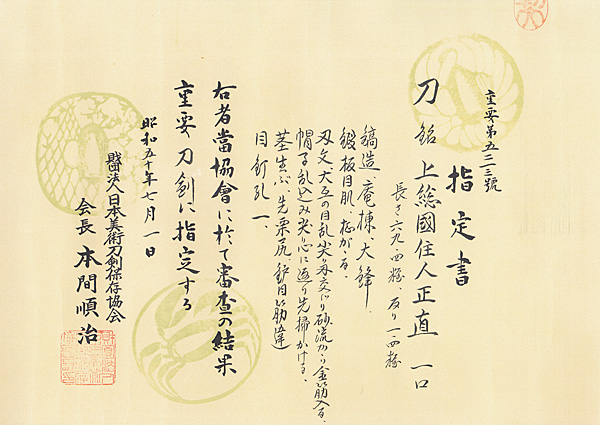 重要第五二三三號
指定書
刀 銘 上総國住人正直 一口
長さ 六九・四糎、反り 一・四糎
鎬造、庵棟、大鋒、
鍛 板目肌、柾がかる、
刃文 大互の目乱、尖り刃交じり、砂流かゝり、金筋入る、
帽子 乱込み尖り心に返り、先掃かける、
茎 生ぶ、先栗尻、鑢目筋違
目釘孔一、
右者當協會に於て審査の結果
重要刀剣に指定する
昭和五十年七月一日
財団法人日本美術刀剣保存協会
会長 本間順治